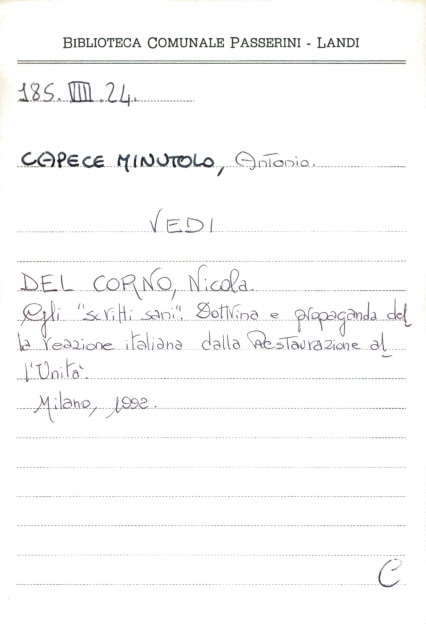 BIBLIOTECA COMUNALE PASSERINI - LANDI
185. VIII. 24.
CAPECE MINUTOLO, Antonio.
VEDI
DEL CORNO, Nicola.
Gli "scritti sani". Dottrina e propaganda del
la reazione italiana dalla Restaurazione al
l'Unità.
Milano, 1992.
C